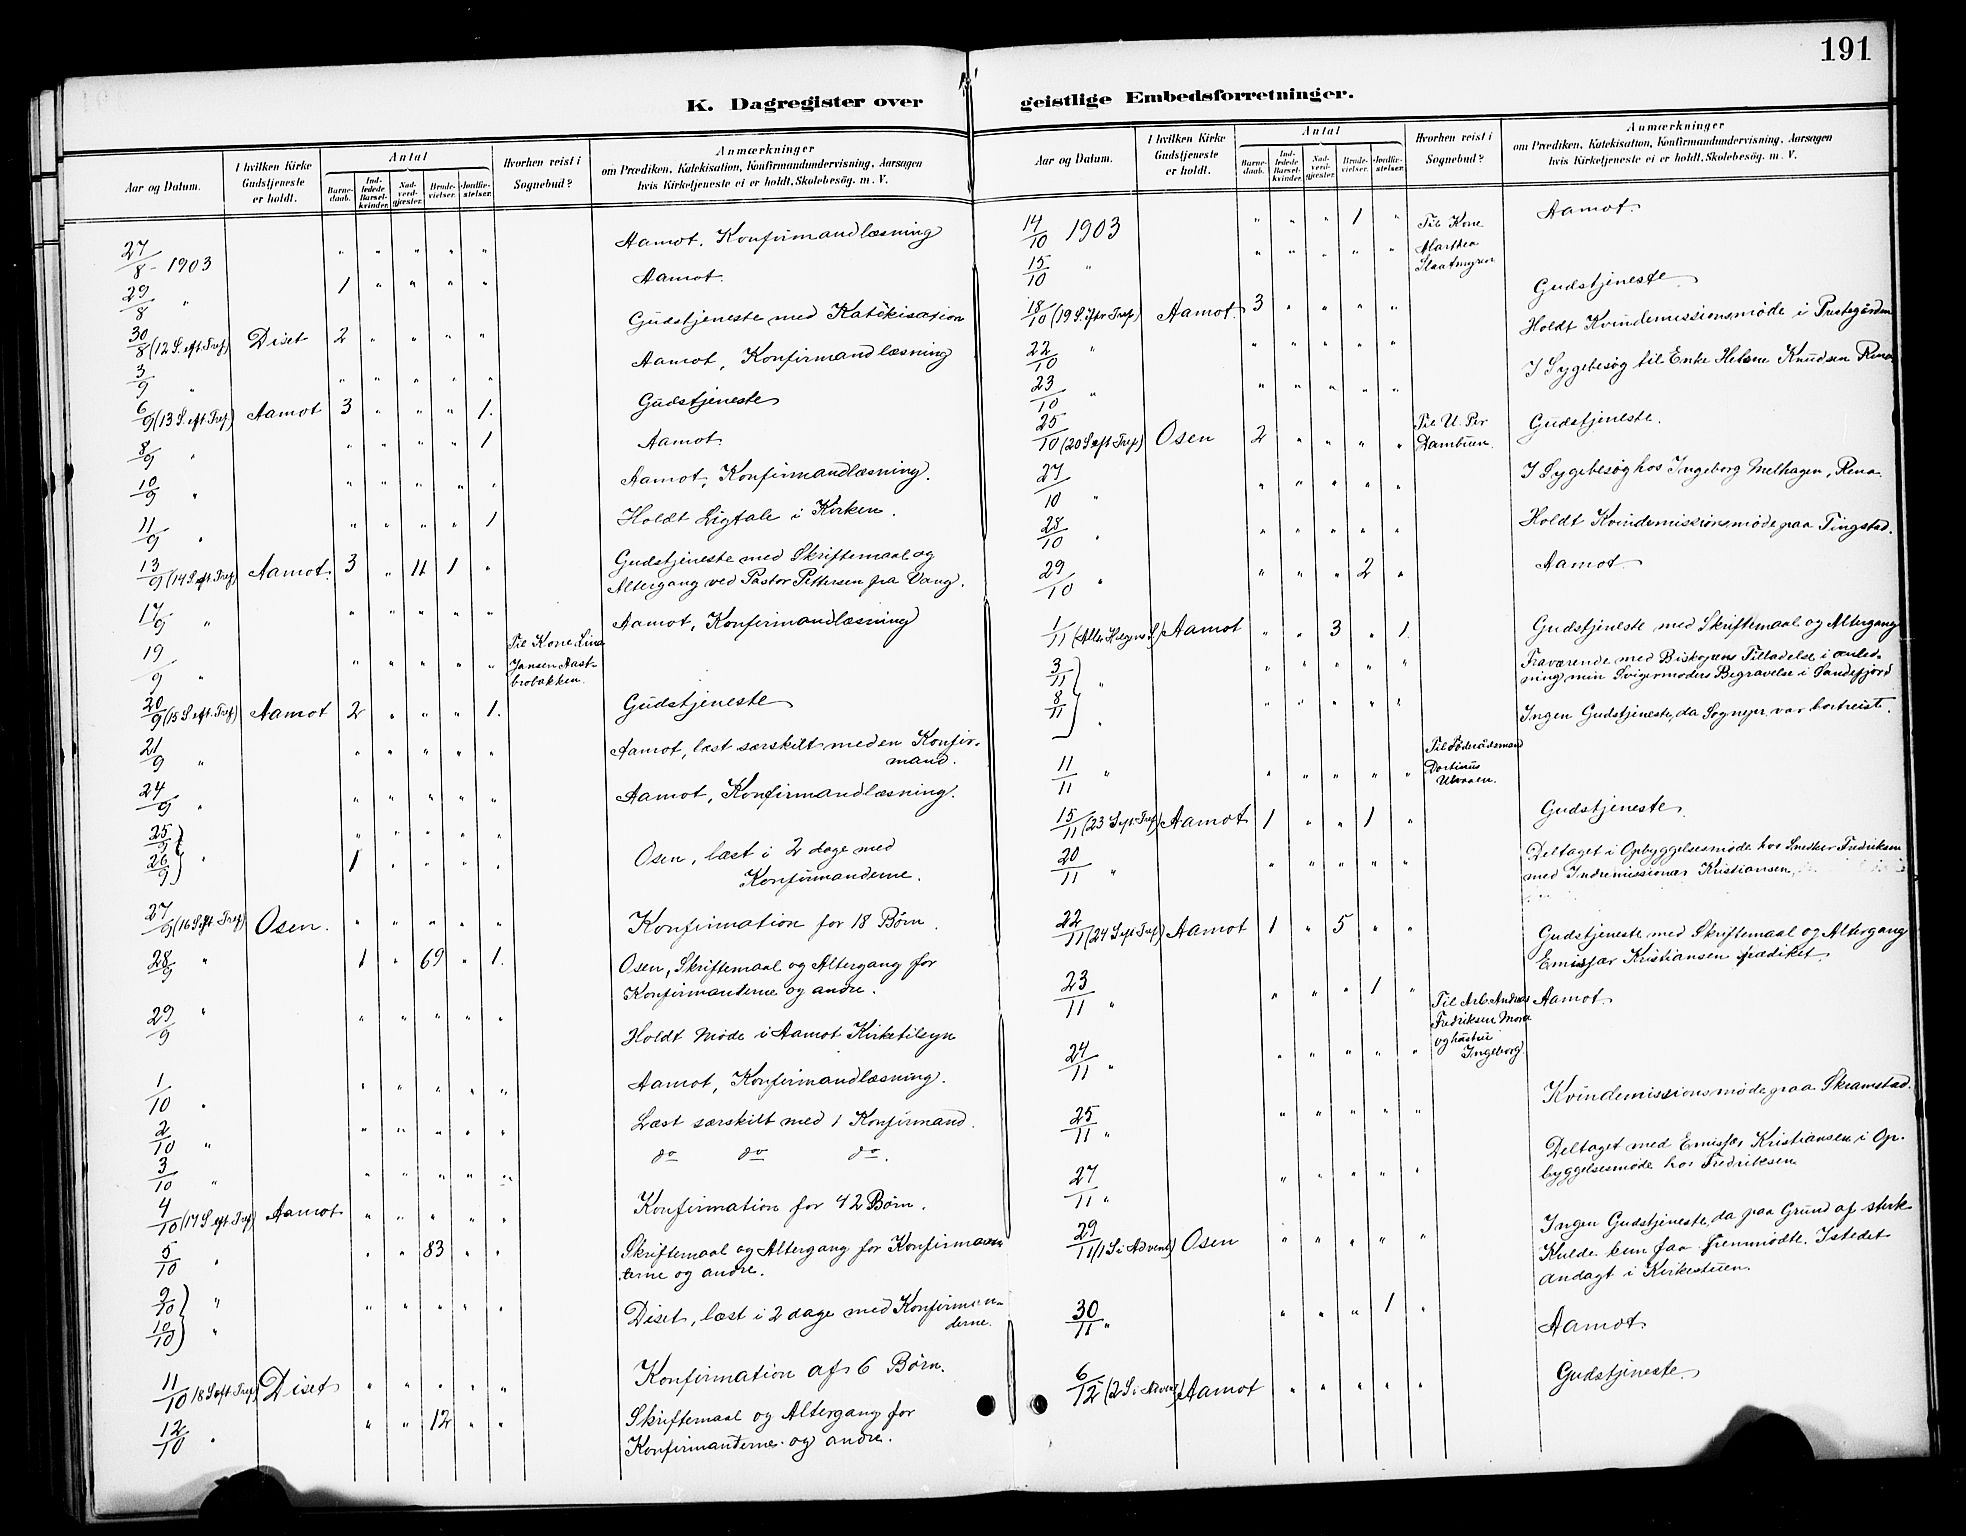 191
K. Dagregister over geistlige Embedsforretninger.
Aar og Datum. | I hvilken Kirke Gudstjeneste er holdt. | Antal | Barnedaab. | Indledede Barselkvinder. | Nadverdgjæster. | Brudevielser. | Jordfæstelser. | Hvorhen reist i Sognebud? | Anmærkninger om Prædiken, Katekisation, Konfirmandundervisning, Aarsagen hvis Kirketjeneste ei er holdt, Skolebesøg. m. V.
27/8 - 1903 " " " " " Aamot. Konfirmandlæsning
29/8 " 1 " " " " Aamot.
30/8 (12 S. eft Tref) Diset 2 " " " " Gudstjeneste med Katekisation
3/9 " " " " " " Aamot, Konfirmandlæsning
6/9 (13 S. eft Tref) Aamot 3 " " " 1. Gudstjeneste
8/9 " " " " " 1 Aamot
10/9 " " " " " " Aamot, Konfirmandlæsning.
11/9 " " " " " 1 Holdt Ligtale i Kirken.
13/9 (14 S eft Tref) Aamot. 3 " 11 1 " Gudstjeneste med Skriftemaal og
Altergang ved Pastor Pettersen fra Vang.
17/9 " " " " " " Aamot, Konfirmandlæsning
19/9 " " " " " " Til Kone Lina
Jansen
brobakken.
20/9 (15 S. eft. Tref) Aamot 2 " " " 1. Gudstjeneste
21/9 " " " " " " Aamot, læst særskilt med en Konfir-
mand.
24/9 " " " " " " Aamot, Konfirmandlæsning.
25/9 " " " " "
26/9 " 1 " " " " Osen, læst i 2 dage med
Konfirmanderne.
27/9 (16 S eft Tref) Osen. " " " " " Konfirmation for 18 Børn.
28/9 " 1 " 69 " 1. Osen, Skriftemaal og Altergang for
Konfirmanterne og andre.
29/9 " " " " " " Holdt Møde i Aamot Kirketilsyn
1/10 " " " " " " Aamot, Konfirmandlæsning.
2/10 " " " " " " Læst særskilt med 1 Konfirmand.
3/10 " " " " " " do do do.
4/10 (17 S eft Tref) Aamot " " " " " Konfirmation for 42 Børn.
5/10 " " " 83 " " Skriftemaal og Altergang for Konfirman
terne og andre.
9/10 "
10/10 " " " " " " Diset, læst i 2 dage med Konfirman-
derne.
11/10 18 S eft Tref) Diset " " " " " Konfirmation af 6 Børn.
12/10 " " " 12 " " Skriftemaal og Altergang for
Konfirmanterne og andre.
Aar og Datum. | I hvilken Kirke Gudstjeneste er holdt. | Antal | Barnedaab. | Indledede Barselkvinder. | Nadverdgjæster. | Brudevielser. | Jordfæstelser. | Hvorhen reist i Sognebud? | Anmærkninger om Prædiken, Katekisation, Konfirmandundervisning, Aarsagen hvis Kirketjeneste ei er holdt, Skolebesøg. m. V.
14/10 1903 " " " 1 " Aamot.
15/10 " " " " " " Til Kone
Marthea
18/10 (19 S. eftr Tref) Aamot. 3 " " " " Gudstjeneste
22/10 " " " " " " Holdt Kvindemissionsmøde i Prestegården
23/10 " " " " " " I Sygebesøg til Enke Helene Knudsen Rena
25/10 (20 S eft Tref) Osen 2 " " " " Til U. Per
Dambuen. Gudstjeneste.
27/10 " " " " " " I Sygebesøg hos Ingeborg Melhagen, Rena.
28/10 " " " " " " Holdt Kvindemissionsmøde paa Tingstad.
29/10 " " " " 2 " Aamot
1/11 (Alle Helgens S) Aamot " " 3 " 1. Gudstjeneste med Skriftemaal og Altergang
3/11 " " " " " " Fraværende med Biskopens Tilladelse i anled-
ning min Svigermoders Begravelse i Sandefjord
8/11 " " " " " " Ingen Gudstjeneste, da Sognepr. var bortreist.
11/11 " " " " " " Til Føderådsmand
Dortinus
Ulvaaen.
15/11 (23 S eft Tref) Aamot 1 " " 1 " Gudstjeneste
20/11 " " " " " " Deltaget i Opbyggelsesmøde hos Snedker Fredriksen
med Indremissionær Kristiansen.
22/11 (24 S eft Tref) Aamot 1 " 5 " " Gudstjeneste med Skriftemaal og Altergang
Emissær Kristiansen prædiket.
23/11 " " " " 1 " Aamot
24/11 " " " " " " Til Arb. Andreas
Fredriksen Moen
og hustru
Ingeborg.
25/11 " " " " " " Kvindemissionsmøde paa Skramstad.
27/11 " " " " " " Deltaget med Emissær Kristiansen i Op-
byggelsesmøde hos Fredriksen
29/11 (1 S i Advent) Osen " " " " " Ingen Gudstjeneste, da paa Grund af sterk
Kulde kun faa fremmødte. Istedet
andagt i Kirkestuen.
30/11 " " " " 1 " Aamot
6/12 (2 S i Advent) Aamot " " " " " Gudstjeneste.